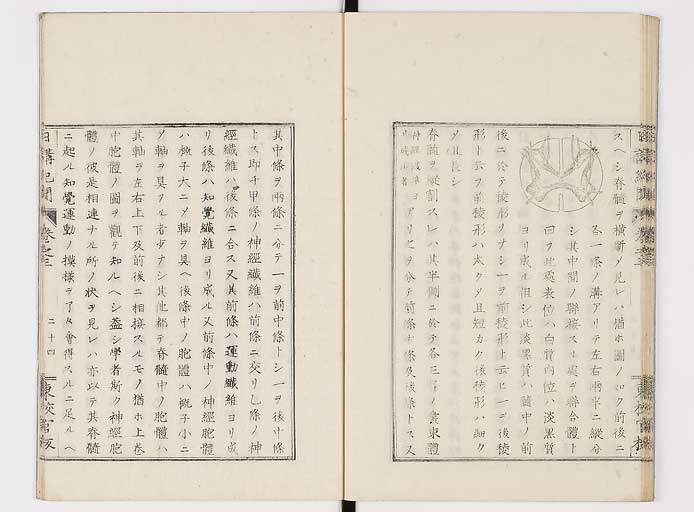 スヘシ脊髓ヲ横斷メ見レハ猶ホ圖ノ如ク前後ニ
各一條ノ溝アリテ左右兩半ニ縱分
シ其中間ノ聯接スル處ヲ聯合體ト
曰フ此處表位ハ白質內位ハ淡黑質
ヨリ成ル但シ此淡黑質ハ髓中ノ前
後ニ於テ稜形ヲナシ一ヲ前稜形ト云ヒ一ヲ後稜
形ト云フ前稜形ハ太クメ且短カク後稜形ハ細ク
メ且長シ
脊髓ヲ縱割スレハ其半側ニ於テ各三
アリ之ヲ分テ前條中條及後條トス又
其中條ヲ兩條ニ分テ一ヲ前中條トシ一ヲ後中條
トス即チ甲條ノ神經纖維ハ前條ニ交リ乙條ノ神
經纖維ハ後條ニ合ス又其前條ハ運動纖維ヨリ成
リ後條ハ知覺纖維ヨリ成ル又前條中ノ神經胞體
ハ概子大ニメ軸ヲ具ヘ後條中ノ胞體ハ概子小ニ
メ軸ヲ具フル者少ナシ其他都テ脊髓中ノ胞體ハ
其軸ヲ左右上下及前後ニ相接スルモノ猶ホ上卷
中胞體ノ圖ヲ觀テ知ルヘシ蓋シ學者斯ク神經胞
體ノ彼是相連ナル所ノ狀ヲ見レハ亦以テ其脊髓
ニ起ル知覺運動ノ摸樣ヲ了々會得スルニ足ルヘ
日講記聞
卷之三
二十四
東校官板